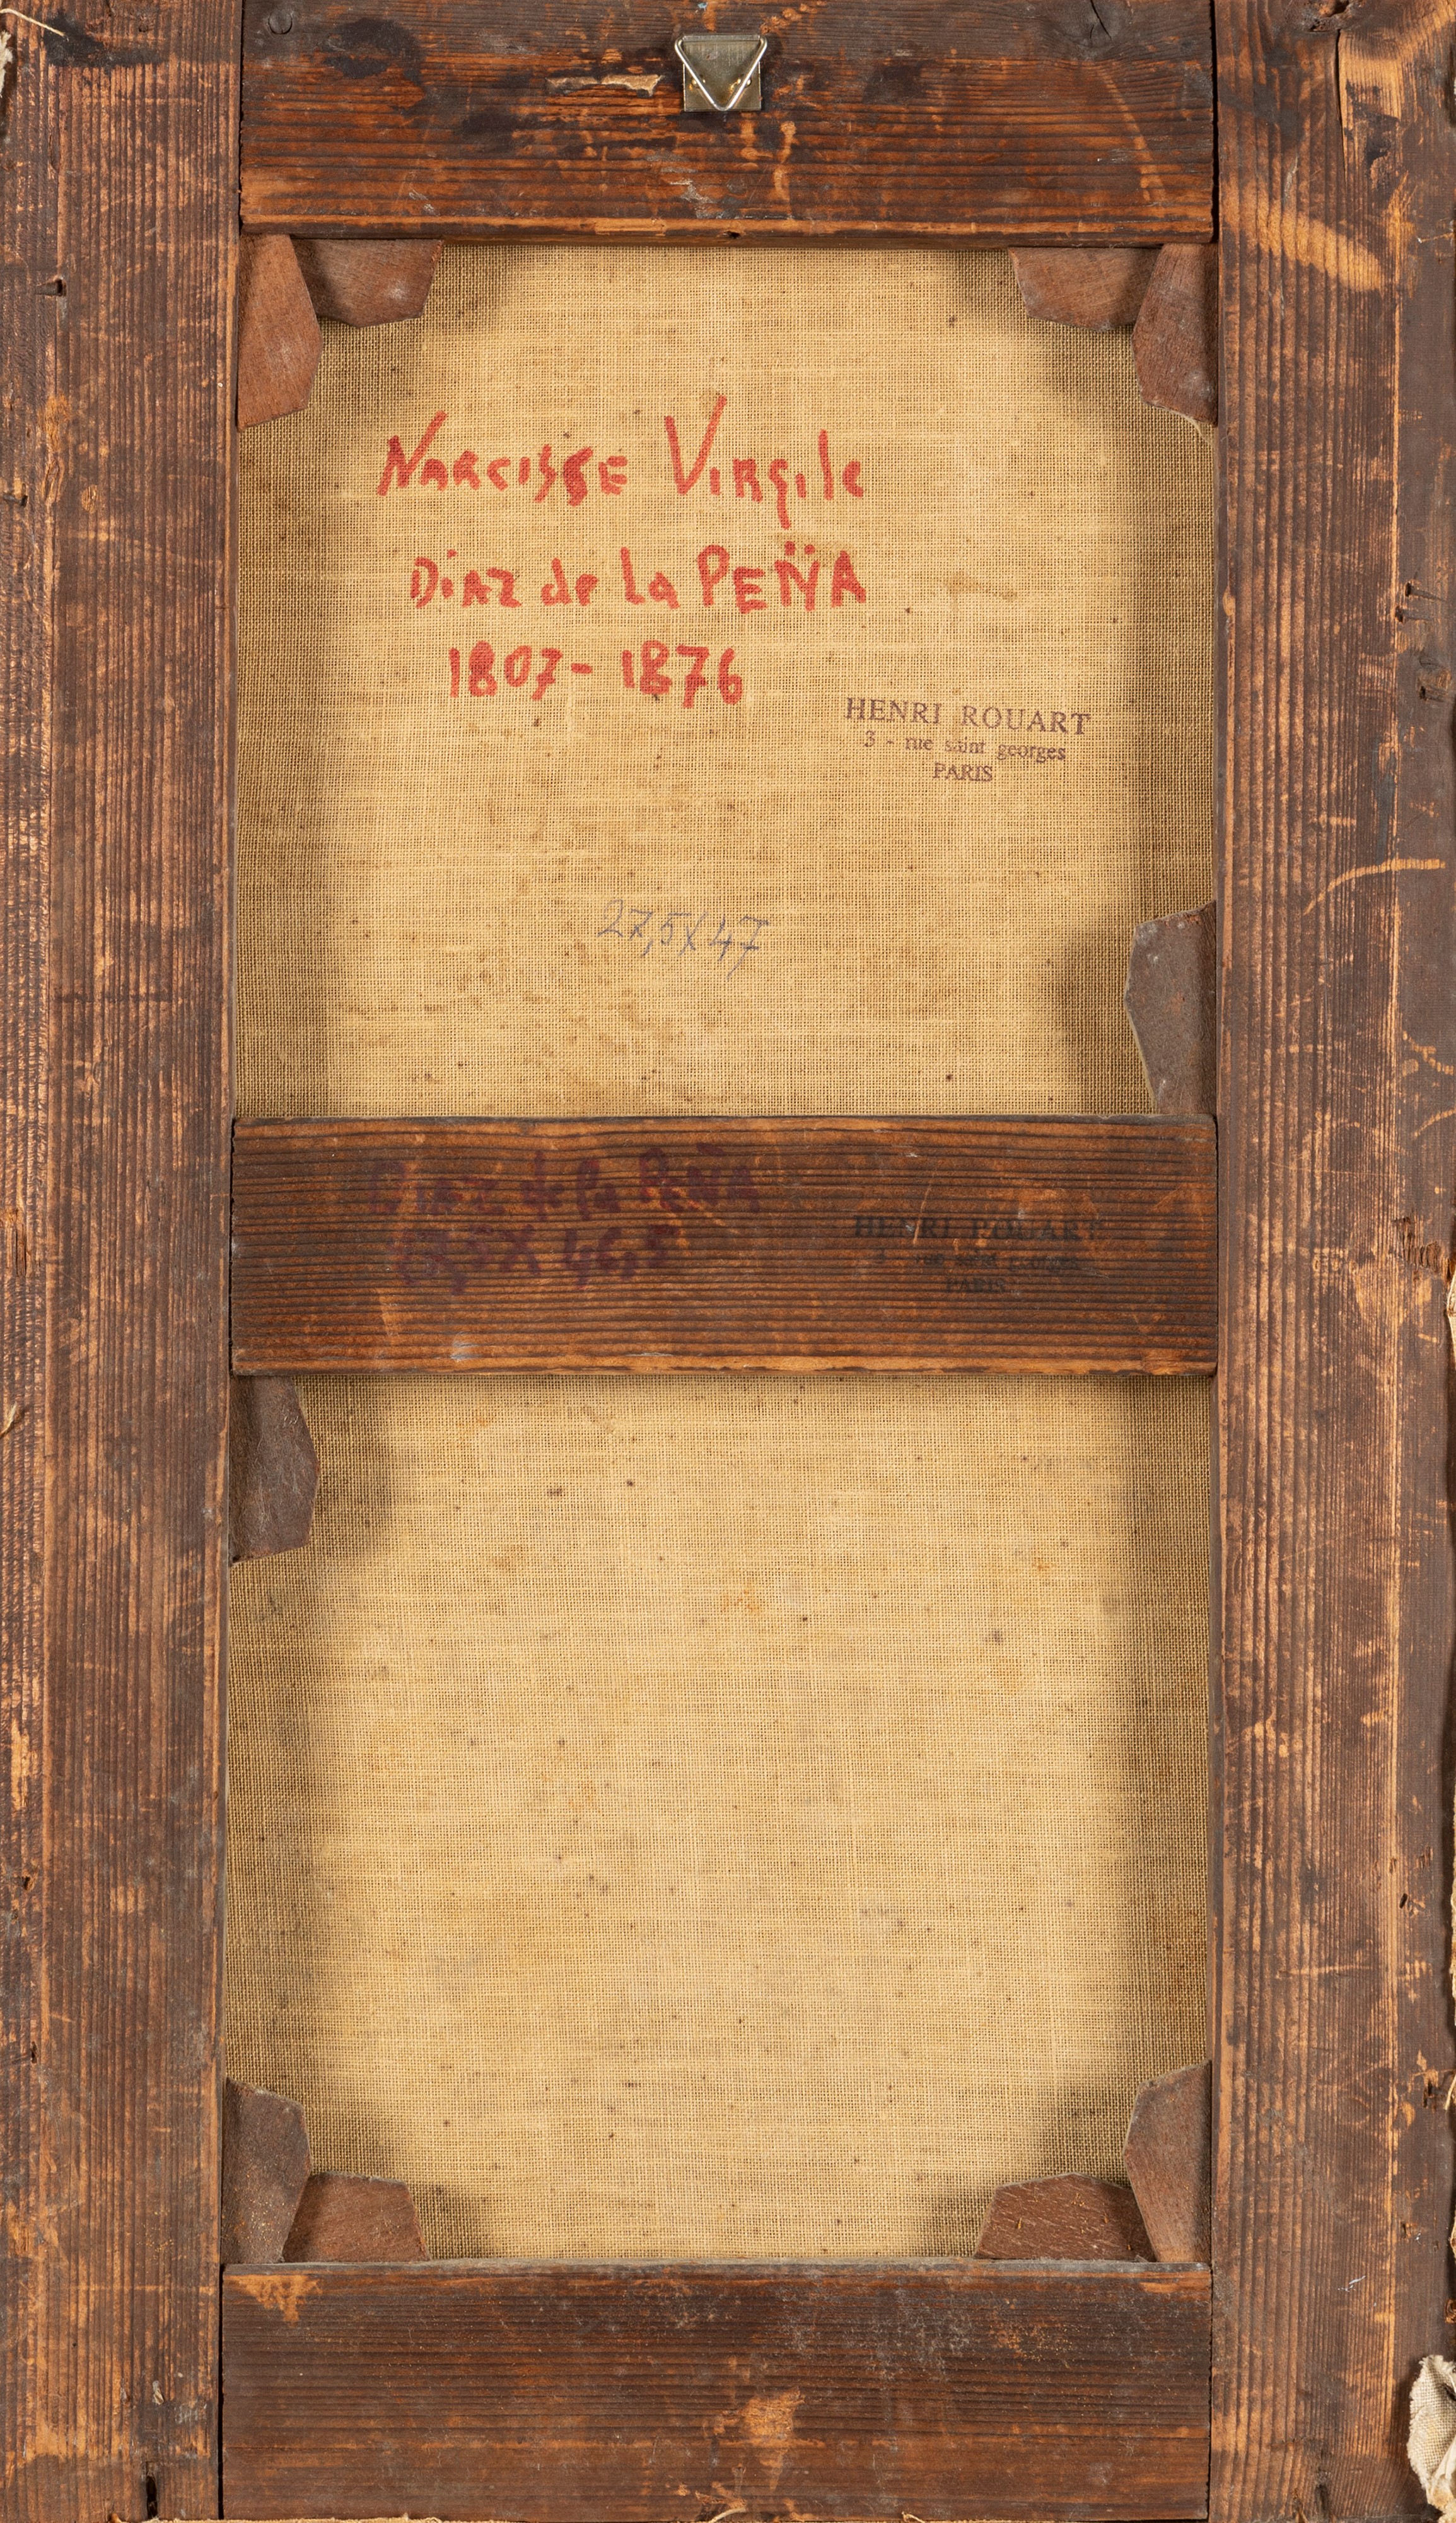 NARCISSE VIRgile
DiAZ de La PEÑA
1807 - 1876
HENRI ROUART
3 - rue saint georges
PARIS
27,5 X 47
DiAZ de la PEÑA
X 46,5
HENRI ROUART
3 - rue saint georges
PARIS